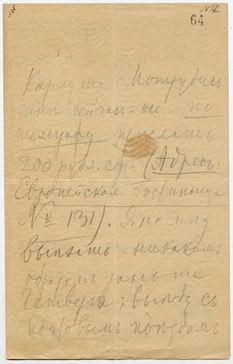 64
Карлуша Потрудись
сейчас-же по
телеграфу прислать
200 руб. сер. (Адресъ:
Европейская гостинница
№ 131). Я не могу
выехать никакимъ
образомъ раньше
Четверга; выеду съ
почтовымъ поѣздомъ